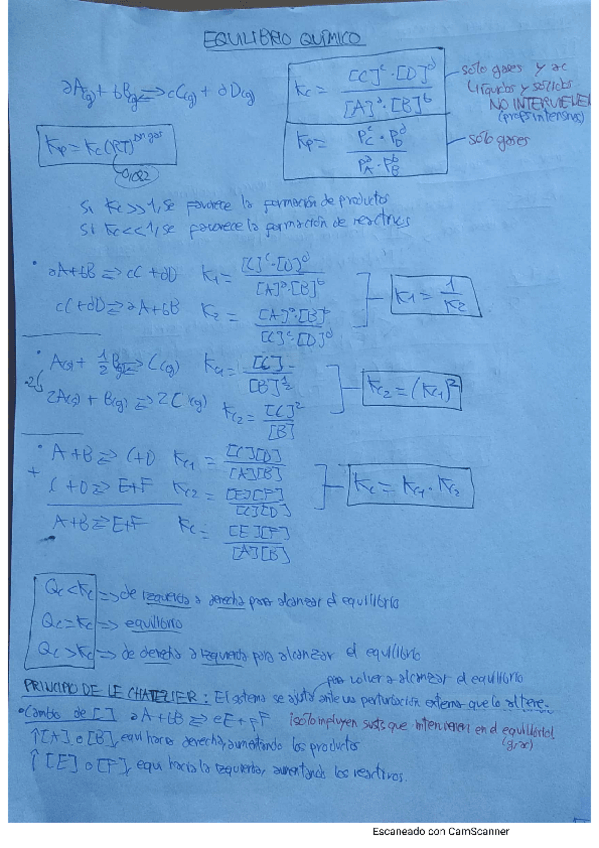 EQUILIBRIO QUÍMICO
aA(g) + bB(g) ⇌ cC(g) + dD(g)
Kc = [C]^c · [D]^d / [A]^a · [B]^b
sólo gases y ac
líquidos y sólidos
NO INTERVIENEN
(props intensivas)
Kp = Kc(RT)^Δn gas
0,082
Kp = P_C^c · P_D^d / P_A^a · P_B^b
sólo gases
Si Kc >> 1, se favorece la formación de productos
Si Kc << 1, se favorece la formación de reactivos
· aA + bB ⇌ cC + dD K1 = [C]^c · [D]^d / [A]^a · [B]^b
cC + dD ⇌ aA + bB K2 = [A]^a · [B]^b / [C]^c · [D]^d
K1 = 1 / K2
· A(s) + 1/2 B(g) ⇌ C(g) Kc1 = [C] / [B]^1/2
2A(s) + B(g) ⇌ 2C(g) Kc2 = [C]^2 / [B]
Kc2 = (Kc1)^2
· A + B ⇌ C + D Kc1 = [C][D] / [A][B]
+ C + D ⇌ E + F Kc2 = [E][F] / [C][D]
A + B ⇌ E + F Kc = [E][F] / [A][B]
Kc = Kc1 · Kc2
Qc < Kc ⇒ de izquierda a derecha para alcanzar el equilibrio
Qc = Kc ⇒ equilibrio
Qc > Kc ⇒ de derecha a izquierda para alcanzar el equilibrio
para volver a alcanzar el equilibrio
PRINCIPIO DE LE CHATELIER: El sistema se ajusta ante una perturbación externa que lo altere.
· Cambio de [ ] aA + bB ⇌ eE + fF ¡sólo influyen susts que intervienen en el equilibrio!
(g y ac)
↑ [A] o [B], equi hacia derecha, aumentando los productos
↑ [E] o [F], equi hacia la izquierda, aumentando los reactivos.
Escaneado con CamScanner